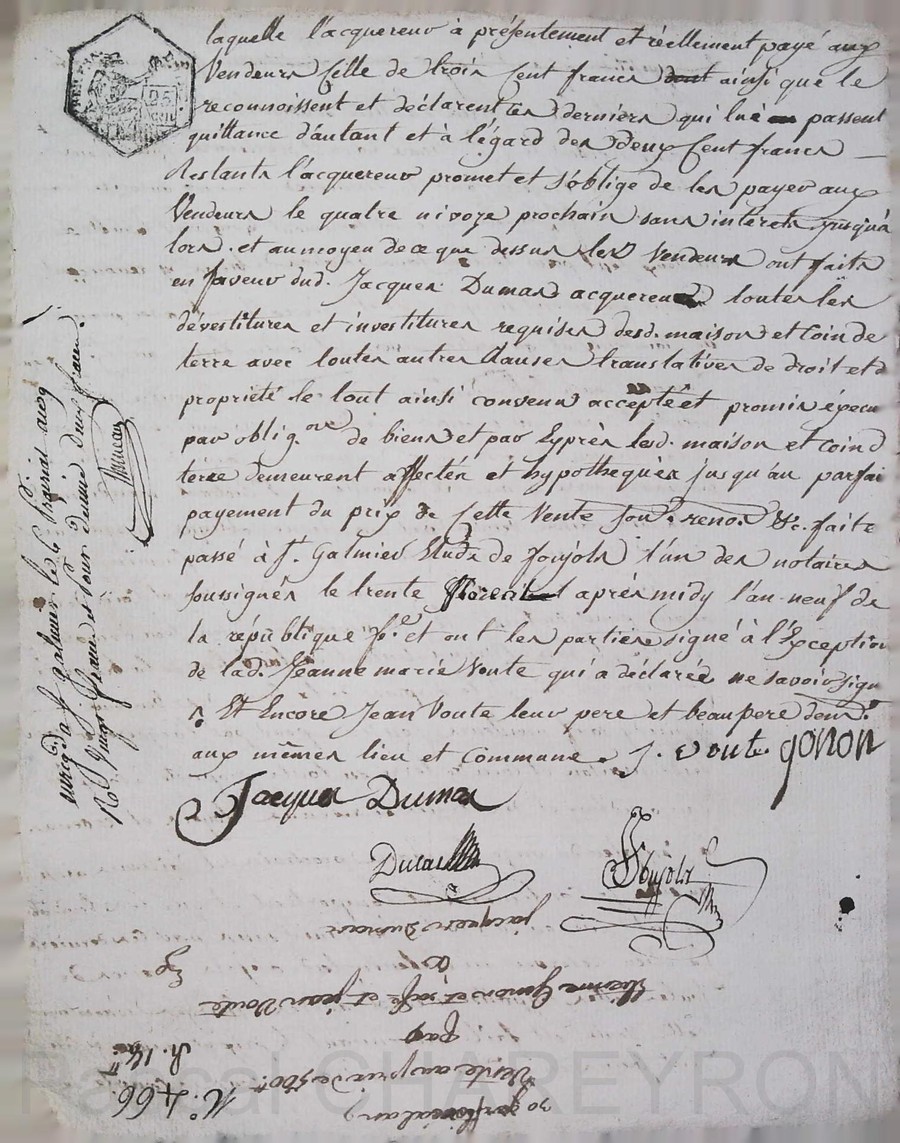 laquelle l'acquereur à présentement et réellement payé aux
Vendeurs Celle de trois Cent francs dont ainsi que le
reconnoissent et déclarent ces derniers qui lui en passent
quittance d'autant et à l'égard des deux Cent francs
Restants l'acquereur promet et s'oblige de les payer aux
Vendeurs le quatre nivoze prochain sans intérets jusqu'à
lors. et au moyen de ce que dessus les Vendeurs ont faits
en faveur dud. Jacques Dumas acquereur toutes les
dévestitures et investitures requises desd. maison et Coin de
terre avec toutes autres Clauses translatives de droit et d
propriété le tout ainsi convenu accepté et promis éxecu
par oblig.on de biens et par Exprès lesd. maison et Coin d
terre demeurent affectés et hypothequés jusqu'au parfai
payement du prix de Cette Vente renon. &c. faite
passé à St. Galmier Etude de Foujols l'un des notaires
soussignés le trente floreal après midy l'an neuf de
la république f.se et ont les parties signé à l'Exception
de lad. Jeanne marie Voute qui a déclarée ne savoir sign
Et Encore Jean Voute leur pere et beaupere dem.t
aux mêmes lieu et Commune. J. voute gonon
Jacques Dumas
Ducas
Foujols
enregd. à St galmier le 6 prairial an 9
Recu francs et pour dixme deux francs
jacques Dumas
a
Etienne Gonon et sa fe et jean Voute
par
Vente au prix de 500 tt
30 floréal an 9
N.o 466